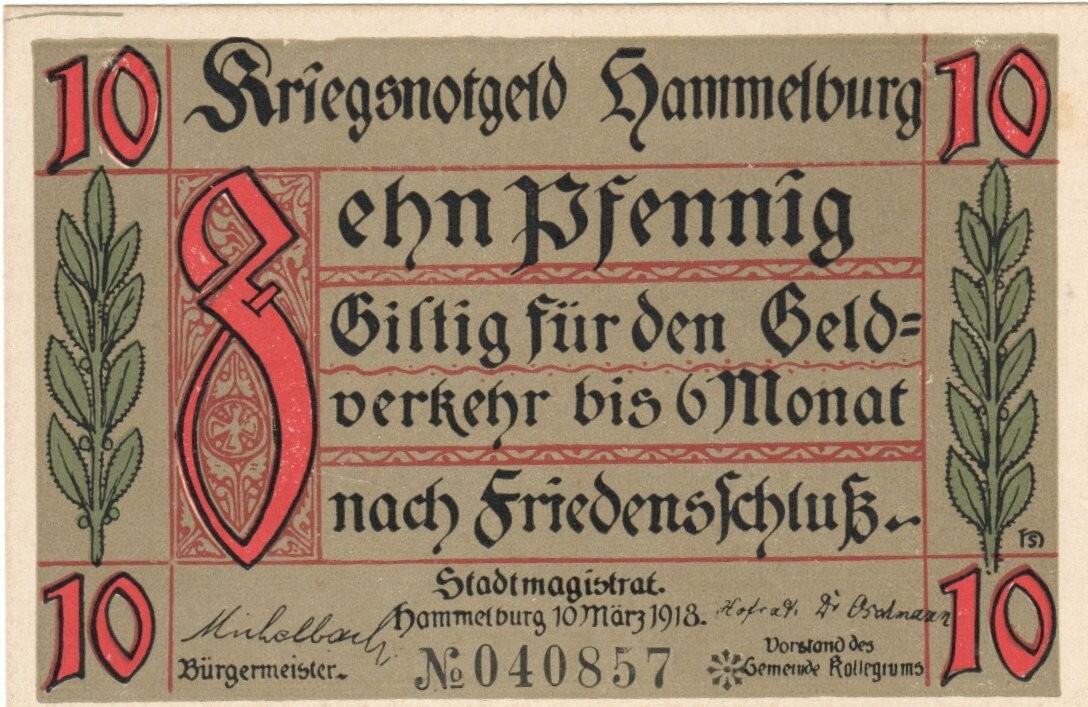 10 Kriegsnotgeld Hammelburg 10
Zehn Pfennig
Giltig für den Geld=
verkehr bis 6 Monat
nach Friedensschluß.
Stadtmagistrat.
Hammelburg 10 März 1918.
Michelbach
Hofrat. Dr
Bürgermeister.
No 040857
Vorstand des
Gemeinde Kollegiums
10 10